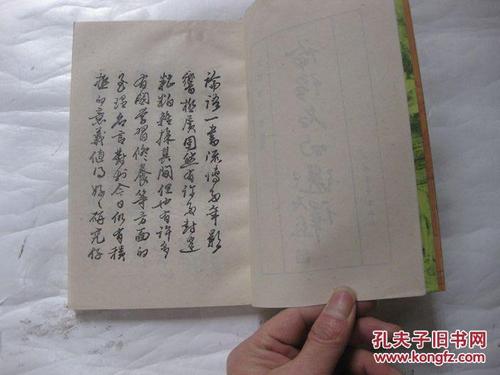 論語一書流傳多年影
響極廣固然有許多封建
糟粕雜揉其間但也有許多
有関学習修養等方面的
至理名言 今日仍有積
極的意義值得好々研究
孔夫子旧书网
www.kongfz.com